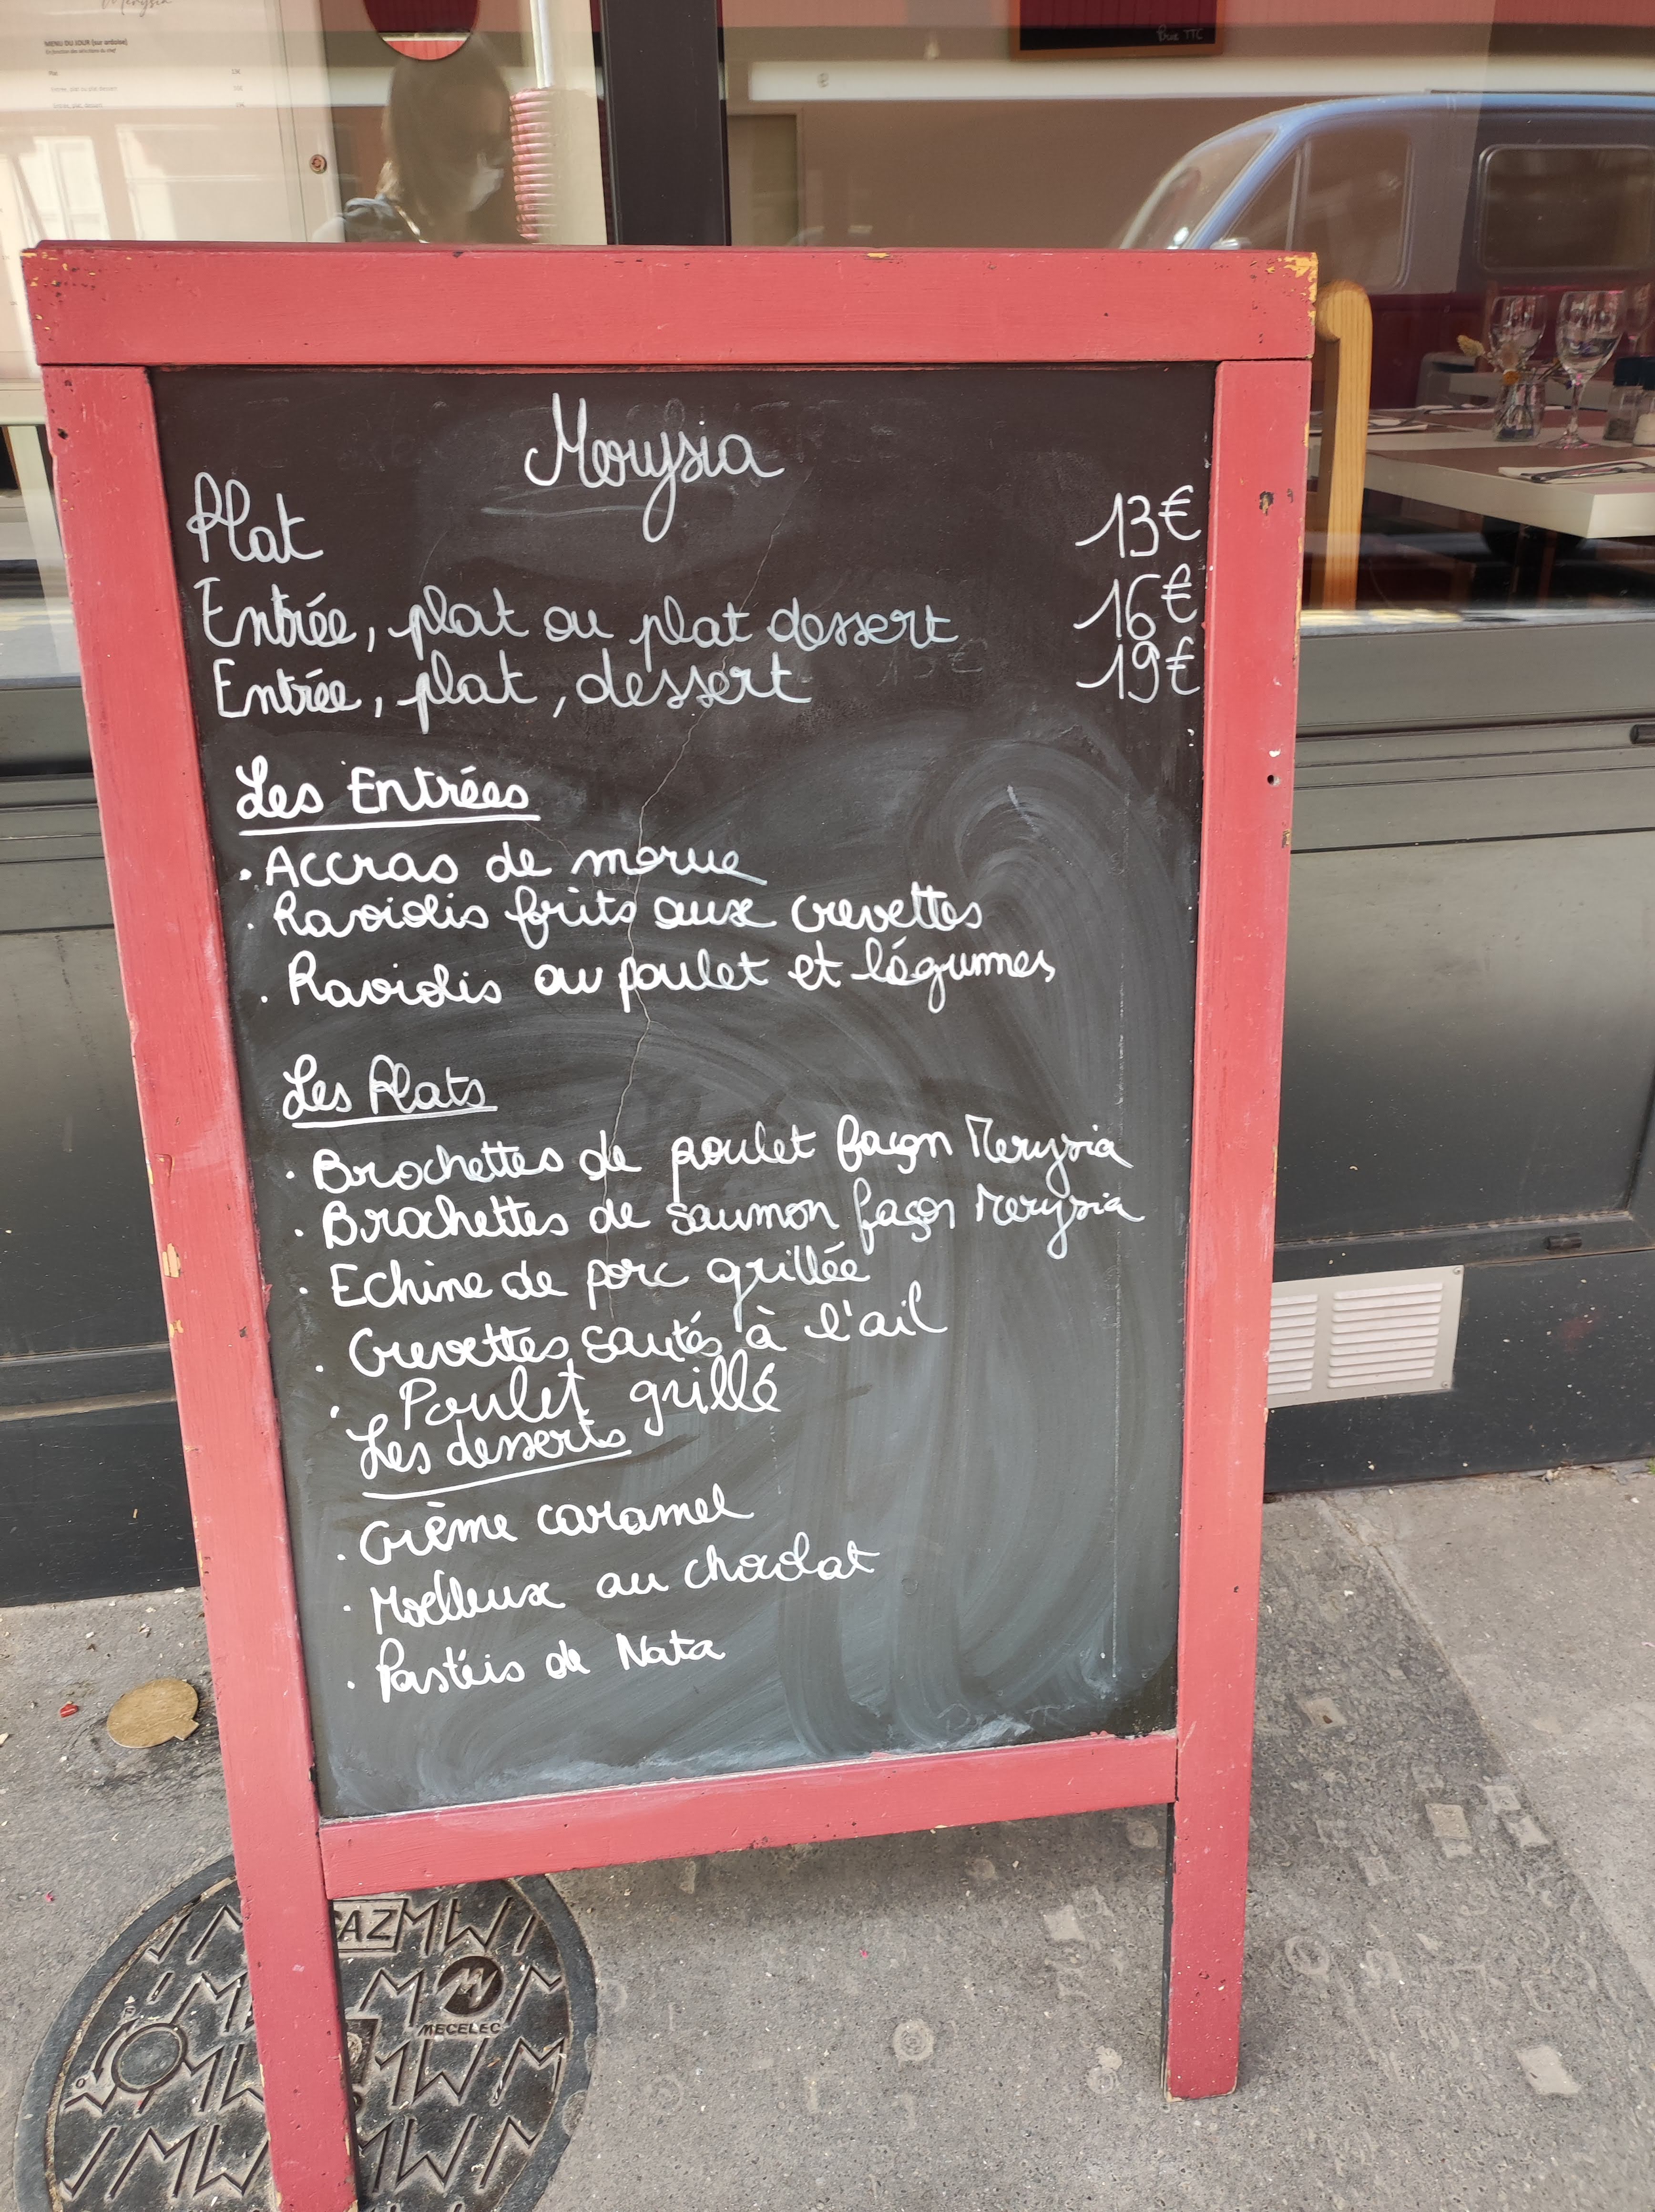 Merysia
MENU DU JOUR (sur ardoise)
Prix TTC
Merysia
Plat 13€
Entrée, plat ou plat dessert 16€
Entrée, plat, dessert 19€
Les Entrées
. Accras de morue
. Raviolis frits aux crevettes
. Raviolis au poulet et légumes
Les Plats
. Brochettes de poulet façon Merysia
. Brochettes de saumon façon Merysia
. Echine de porc grillée
. Crevettes sautés à l'ail
. Poulet grillé
Les desserts
. Crème caramel
. Moelleux au chocolat
. Pastéis de Nata
GAZ
MECELEC